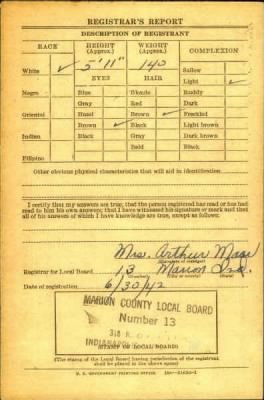 REGISTRAR'S REPORT
DESCRIPTION OF REGISTRANT
RACE HEIGHT (Approx.) WEIGHT (Approx.) COMPLEXION
White ✓ 5' 11" 140 Sallow
EYES HAIR Light ✓
Negro Blue Blonde Ruddy
Gray Red Dark
Oriental Hazel Brown ✓ Freckled
Brown ✓ Black Light brown
Indian Black Gray Dark brown
Bald Black
Filipino
Other obvious physical characteristics that will aid in identification
I certify that my answers are true; that the person registered has read or has had
read to him his own answers; that I have witnessed his signature or mark and that
all of his answers of which I have knowledge are true, except as follows:
Mrs. Arthur
(Signature of registrar)
Registrar for Local Board 13 Marion Ind.
(Number) (City or county) (State)
Date of registration 6/30/42
MARION COUNTY LOCAL BOARD
Number 13
318
INDIANAPOLIS
(STAMP OF LOCAL BOARD)
(The stamp of the Local Board having jurisdiction of the registrant
shall be placed in the above space.)
U. S. GOVERNMENT PRINTING OFFICE 16—21630-1